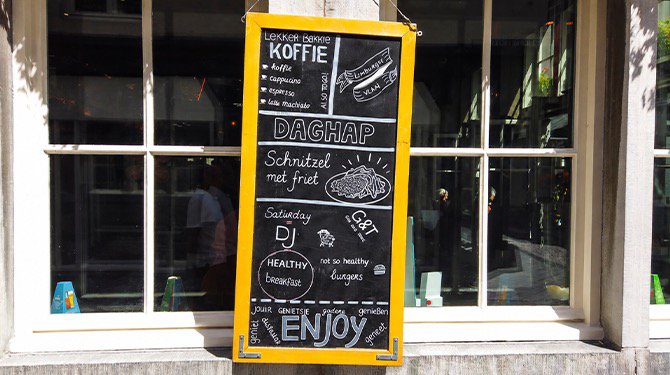 Lekker Bakkie
KOFFIE
koffie
cappucino
espresso
latte machiato
ALSO TO GO!
Limburgse
VLAAI
DAGHAP
Schnitzel
met friet
Saturday
DJ
G&T
HEALTHY
breakfast
not so healthy
burgers
jouir GENIETSJE genießen
geniet ENJOY